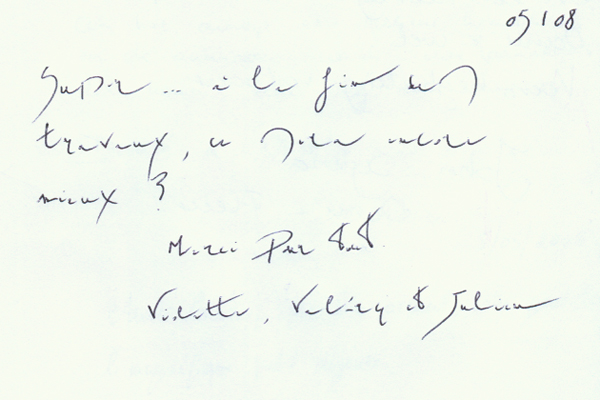 05/08
Super ... à la fin des
travaux, ce sera encore
mieux ?
Merci pour tout.
Violette, Valéry et Julien